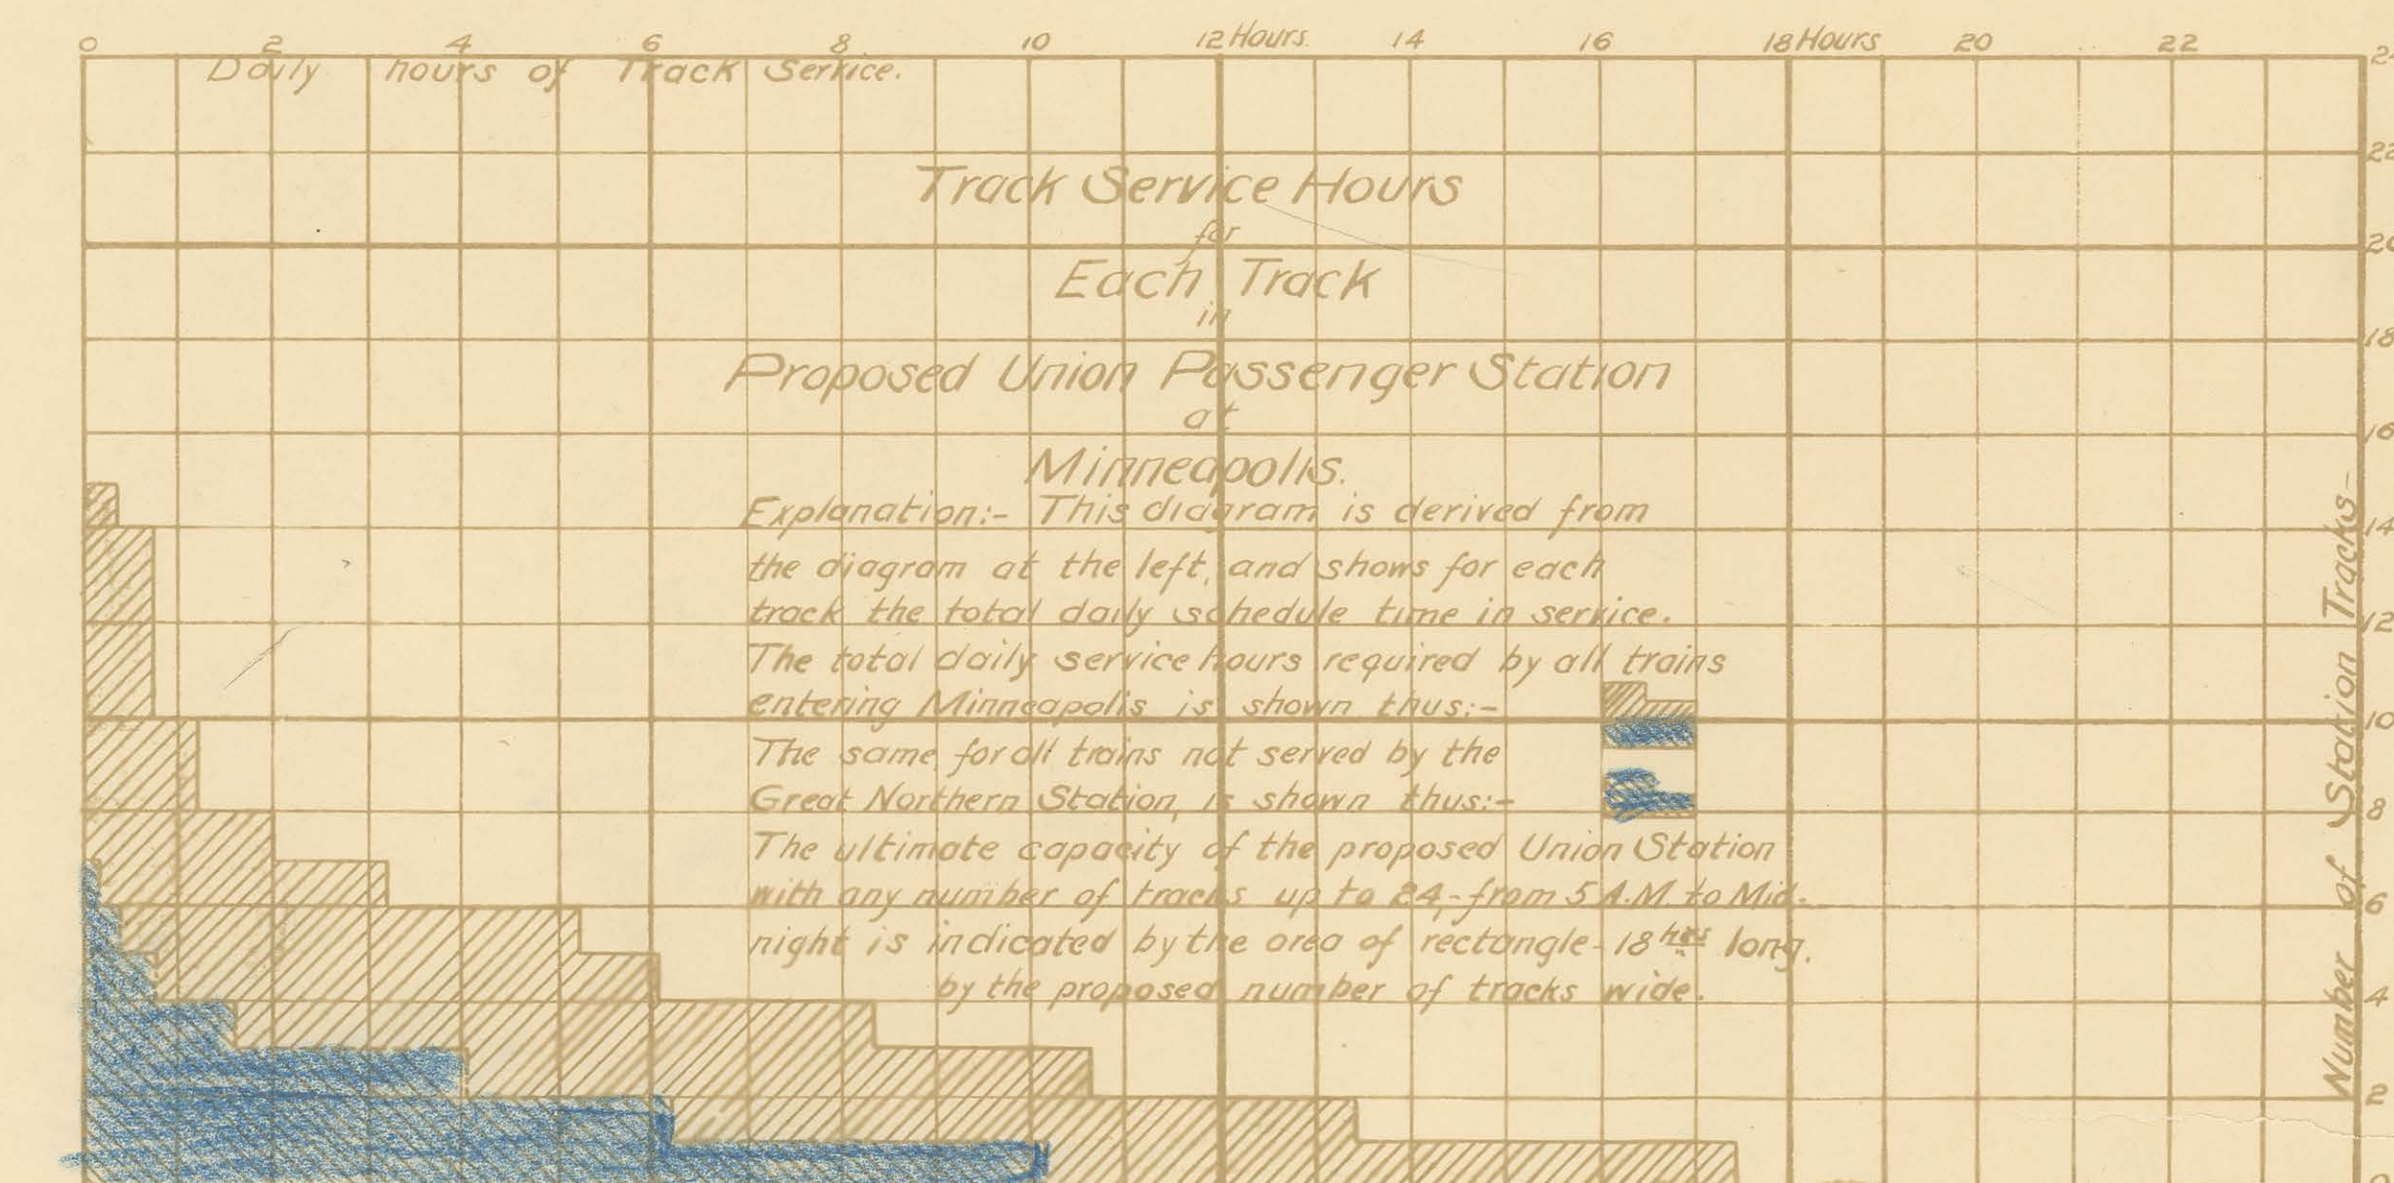 0 2 4 6 8 10 12 Hours. 14 16 18 Hours 20 22 24
Daily hours of Track Service.
22
Track Service Hours
for
20
Each Track
in
18
Proposed Union Passenger Station
at
16
Minneapolis.
Explanation:- This diagram is derived from
14
the diagram at the left, and shows for each
track the total daily schedule time in service.
12
The total daily service hours required by all trains
entering Minneapolis is shown thus:-
10
The same for all trains not served by the
Great Northern Station, is shown thus:-
8
The ultimate capacity of the proposed Union Station
with any number of tracks up to 24,- from 5 A.M. to Mid-
6
night is indicated by the area of rectangle- 18 hrs long.
by the proposed number of tracks wide.
4
2
0
Number of Station Tracks-